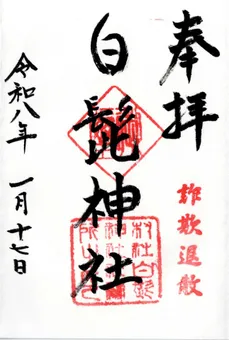 奉拝
詐欺退散
白髭神社
令和八年 一月十七日